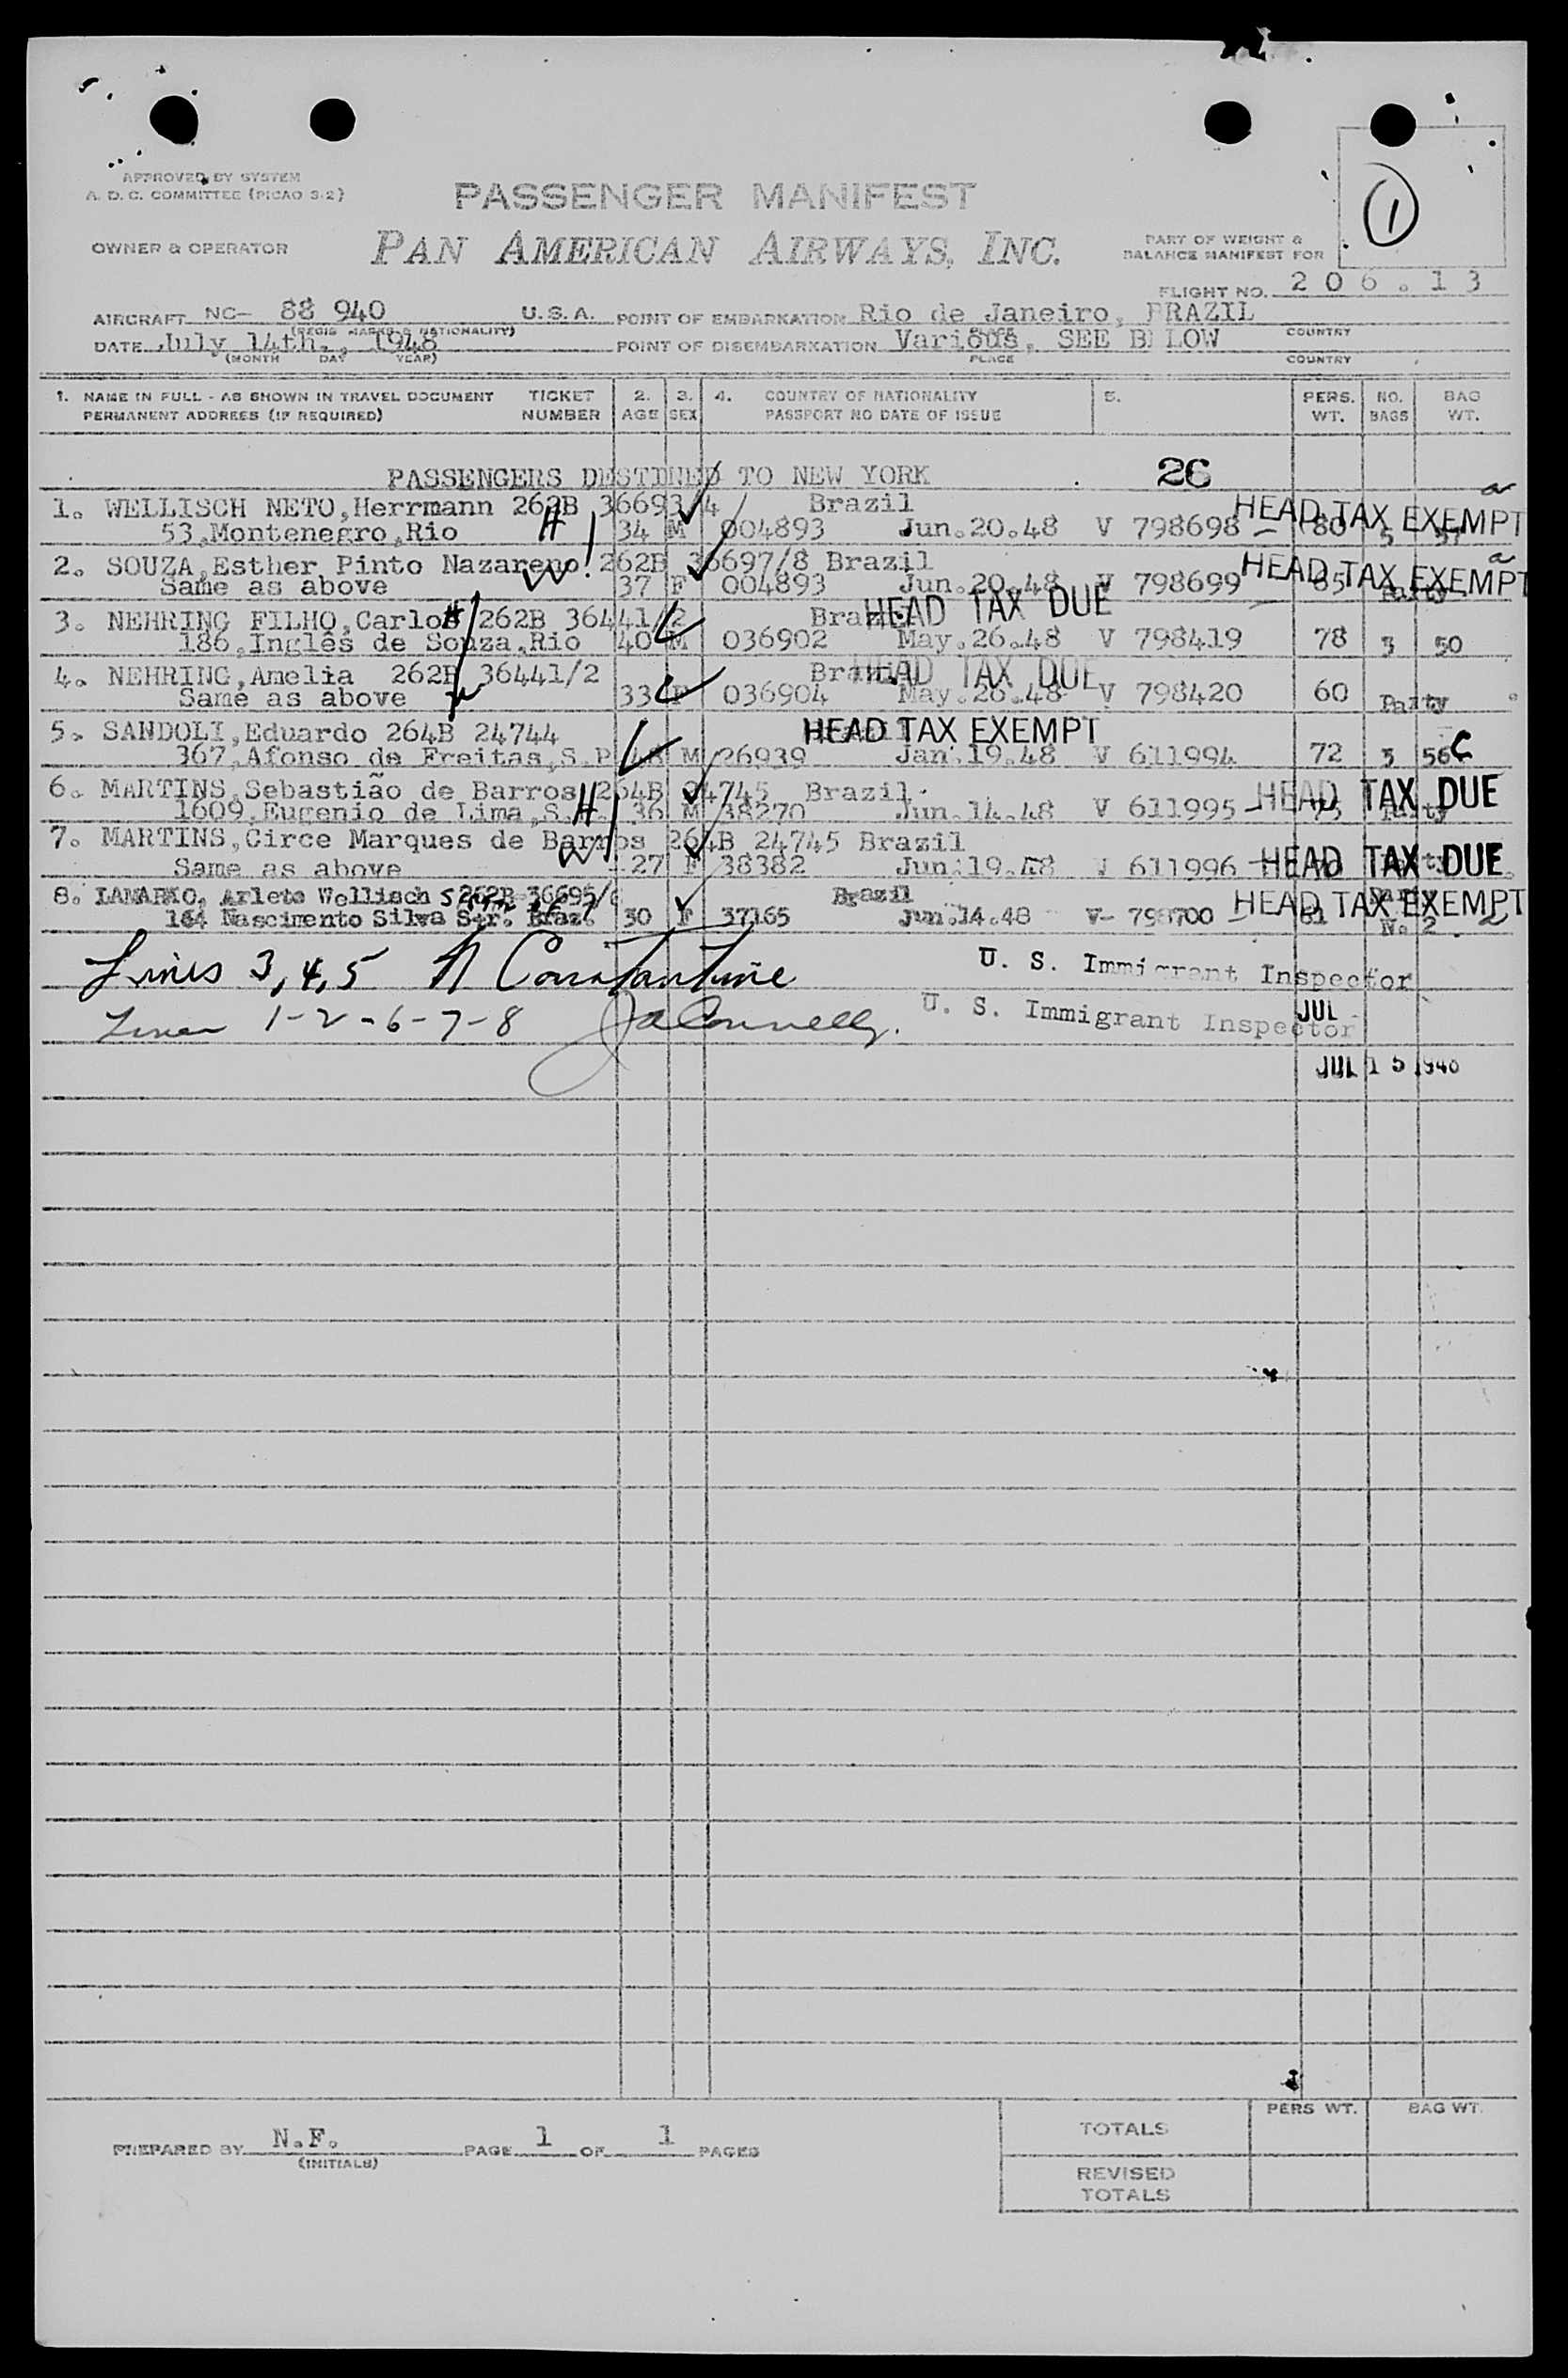 APPROVED BY SYSTEM
A. D. C. COMMITTEE (PICAO S-2)
PASSENGER MANIFEST
1
OWNER & OPERATOR
PAN AMERICAN AIRWAYS, INC.
PART OF WEIGHT &
BALANCE MANIFEST FOR
FLIGHT NO. 206.13
AIRCRAFT NC- 88 940 U.S.A. POINT OF EMBARKATION Rio de Janeiro, BRAZIL
(REGIS MARKS & NATIONALITY) PLACE COUNTRY
DATE July 14th., 1948 POINT OF DISEMBARKATION Various, SEE B LOW
(MONTH DAY YEAR) PLACE COUNTRY
1. NAME IN FULL - AS SHOWN IN TRAVEL DOCUMENT TICKET 2. 3. 4. COUNTRY OF NATIONALITY 5. PERS. NO. BAG
PERMANENT ADDRESS (IF REQUIRED) NUMBER AGE SEX PASSPORT NO DATE OF ISSUE WT. BAGS WT.
PASSENGERS DESTINED TO NEW YORK 26
1. WELLISCH NETO,Herrmann 262B 36693/4 Brazil HEAD TAX EXEMPT
53,Montenegro,Rio H 34 M 004893 Jun.20.48 V 798698 - 80 5 57
2. SOUZA,Esther Pinto Nazareno 262B 36697/8 Brazil HEAD TAX EXEMPT
Same as above W 37 F 004893 Jun.20.48 V 798699 85 Party
3. NEHRING FILHO,Carlos 262B 36441/2 Brazil HEAD TAX DUE
186,Inglês de Souza,Rio 40 M 036902 May.26.48 V 798419 78 3 50
4. NEHRING,Amelia 262B 36441/2 Brazil HEAD TAX DUE
Same as above 33 F 036904 May.26.48 V 798420 60 Party
5. SANDOLI,Eduardo 264B 24744 HEAD TAX EXEMPT
367,Afonso de Freitas,S.P 48 M 26939 Jan.19.48 V 611994 72 3 56 C
6. MARTINS,Sebastião de Barros 264B 24745 Brazil HEAD TAX DUE
1609,Eugenio de Lima,S. H 36 M 38270 Jun.14.48 V 611995 - 75 Party
7. MARTINS,Circe Marques de Barros 264B 24745 Brazil HEAD TAX DUE
Same as above W 27 F 38382 Jun.19.48 V 611996 - 70
8. Arlete Wellisch 262B 36695/6 Brazil HEAD TAX EXEMPT
164 Nascimento Silva Str. Braz. 30 F 37165 Jun.14.48 V- 798700 - 61 No 2
Lines 3,4,5 N Constantine U. S. Immigrant Inspector
Lines 1-2-6-7-8 JA Connelly. U. S. Immigrant Inspector
JUL
JUL 15 1948
PREPARED BY N.F. PAGE 1 OF 1 PAGES
(INITIALS)
PERS WT. BAG WT.
TOTALS
REVISED
TOTALS